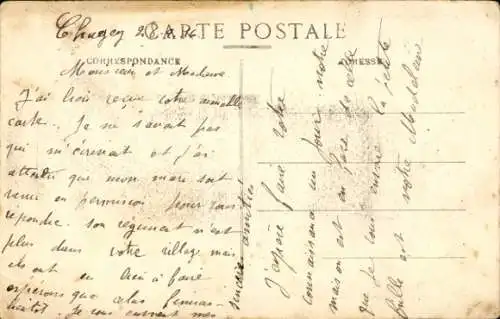 Chagey 28.8.16
CARTE POSTALE
CORRESPONDANCE
ADRESSE
Monsieur et Madame
J'ai bien reçue votre aimable
carte. Je ne savait pas
qui m'écrivait et j'ai
attendu que mon mari soit
venu en permission pour vous
répondre. Son régiment n'est
plus dans votre village mais
ils ont en
espérons que cela
bientôt. Je vous envoie mes
sincères amitiés
J'espère faire votre
connaissance un jour notre
maison est en face de celle
que je vous envoie la petite
fille est notre Madeleine